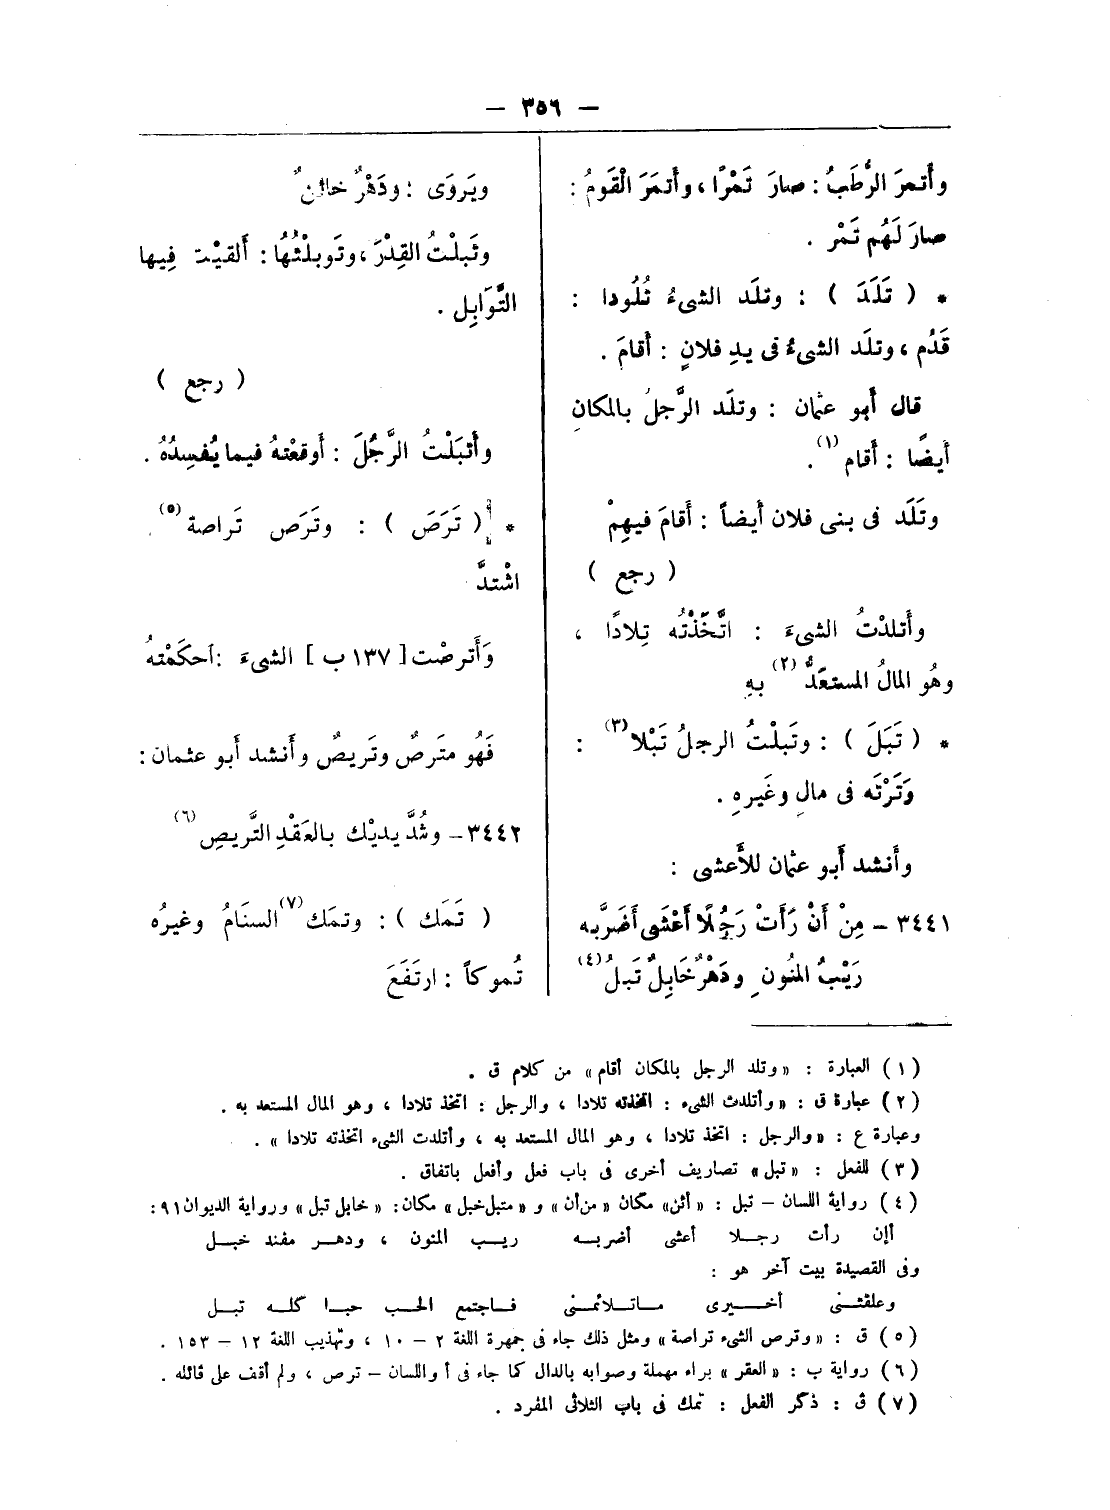 — ٣٥٦ —
وأَتمرَ الرُّطَبُ : صارَ تَمْرًا ، وأَتمَرَ الْقَومُ :
صارَ لَهُم تَمْر .
* ( تَلَدَ ) : وتلَد الشىءُ تُلُودا :
قَدُم ، وتلَد الشىءُ فى يدِ فلانٍ : أَقامَ .
قال أَبو عثمان : وتلَد الرَّجلُ بالمكانِ
أَيضًا : أَقام (١) .
وتَلَد فى بنى فلان أَيضاً : أَقامَ فيهِمْ
( رجع )
وأَتلدْتُ الشىءَ : اتَّخَذْتُه تِلادًا ،
وهُو المالُ المستعَدُّ (٢) بهِ
* ( تَبَلَ ) : وتَبلْتُ الرجلُ تَبْلا (٣) :
وَتَرْتَه فى مالِ وغَيرهِ .
وأَنشد أَبو عثمان للأَعشى :
٣٤٤١ – مِنْ أَنْ رَأَتْ رَجُلًا أَعْشَى أَضَرَّ به
رَيْبُ المنُون ودَهْرٌ خَابِلٌ تَبلُ (٤)
ويَروَى : ودَهْرٌ خائنٌ
وتَبلْتُ القِدْرَ ، وتَوبلْتُهَا : أَلقيْت فِيها
التَّوَابِل .
( رجع )
وأَتبَلْتُ الرَّجُلَ : أَوقعْتهُ فيما يُفسِدُهُ .
* ( تَرَصَ ) : وتَرَص تَراصة (٥) .
اشْتدَّ
وَأَترصْت [ ١٣٧ ب ] الشىءَ : أَحكَمْتهُ
فَهُو مترَصٌ وتَريصٌ وأَنشد أَبو عثمان :
٣٤٤٢ – وشُدَّ يديْك بالعَقْدِ التَّريصِ (٦)
( تَمَك ) : وتمَك (٧) السنَامُ وغيرُه
تُموكاً : ارتَفَعَ
( ١ ) العبارة : «وتلد الرجل بالمكان أقام» من كلام ق .
( ٢ ) عبارة ق : «وأتلدت الشىء : اتخذته تلادا ، والرجل : اتخذ تلادا ، وهو المال المستعد به .
وعبارة ع : «والرجل : اتخذ تلادا ، وهو المال المستعد به ، وأتلدت الشىء اتخذته تلادا» .
( ٣ ) للفعل : «تبل» تصاريف أخرى فى باب فعل وأفعل باتفاق .
( ٤ ) رواية اللسان – تبل : «أئن» مكان «من أن» و «متبل خبل» مكان: «خابل تبل» ورواية الديوان ٩١ :
أإن رأت رجلا أعشى أضربه ريب المنون ، ودهر مفند خبل
وفى القصيدة بيت آخر هو :
وعلقتنى أخيرى ماتلائمنى فاجتمع الحب حبا كله تبل
( ٥ ) ق : «وترص الشىء تراصة» ومثل ذلك جاء فى جمهرة اللغة ٢ – ١٠ ، وتهذيب اللغة ١٢ – ١٥٣ .
( ٦ ) رواية ب : «العقر» براء مهملة وصوابه بالدال كما جاء فى أ واللسان – ترص ، ولم أقف على قائله .
( ٧ ) ق : ذكر الفعل : تمك فى باب الثلاثى المفرد .